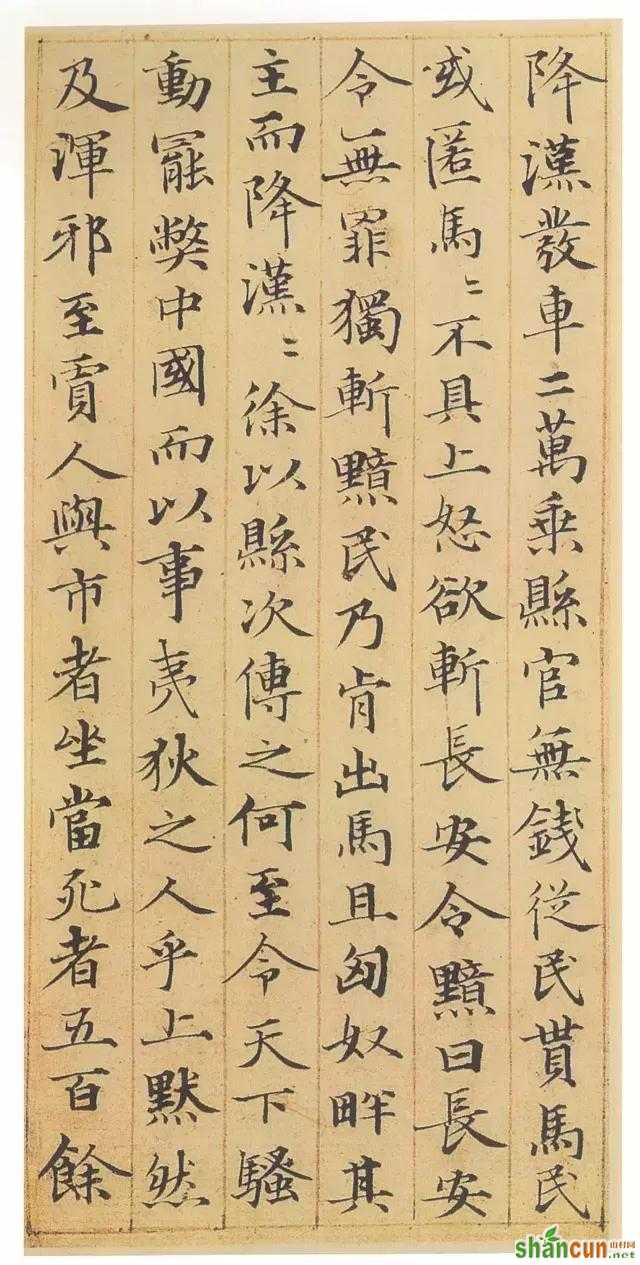 降漢發車二萬乘縣官無錢從民貰馬民
或匿馬〻不具上怒欲斬長安令黯曰長安
令無罪獨斬黯民乃肯出馬且匈奴畔其
主而降漢〻徐以縣次傳之何至令天下騷
動罷弊中國而以事夷狄之人乎上默然
及渾邪至賈人與市者坐當死者五百餘
shancun 山村网
.net